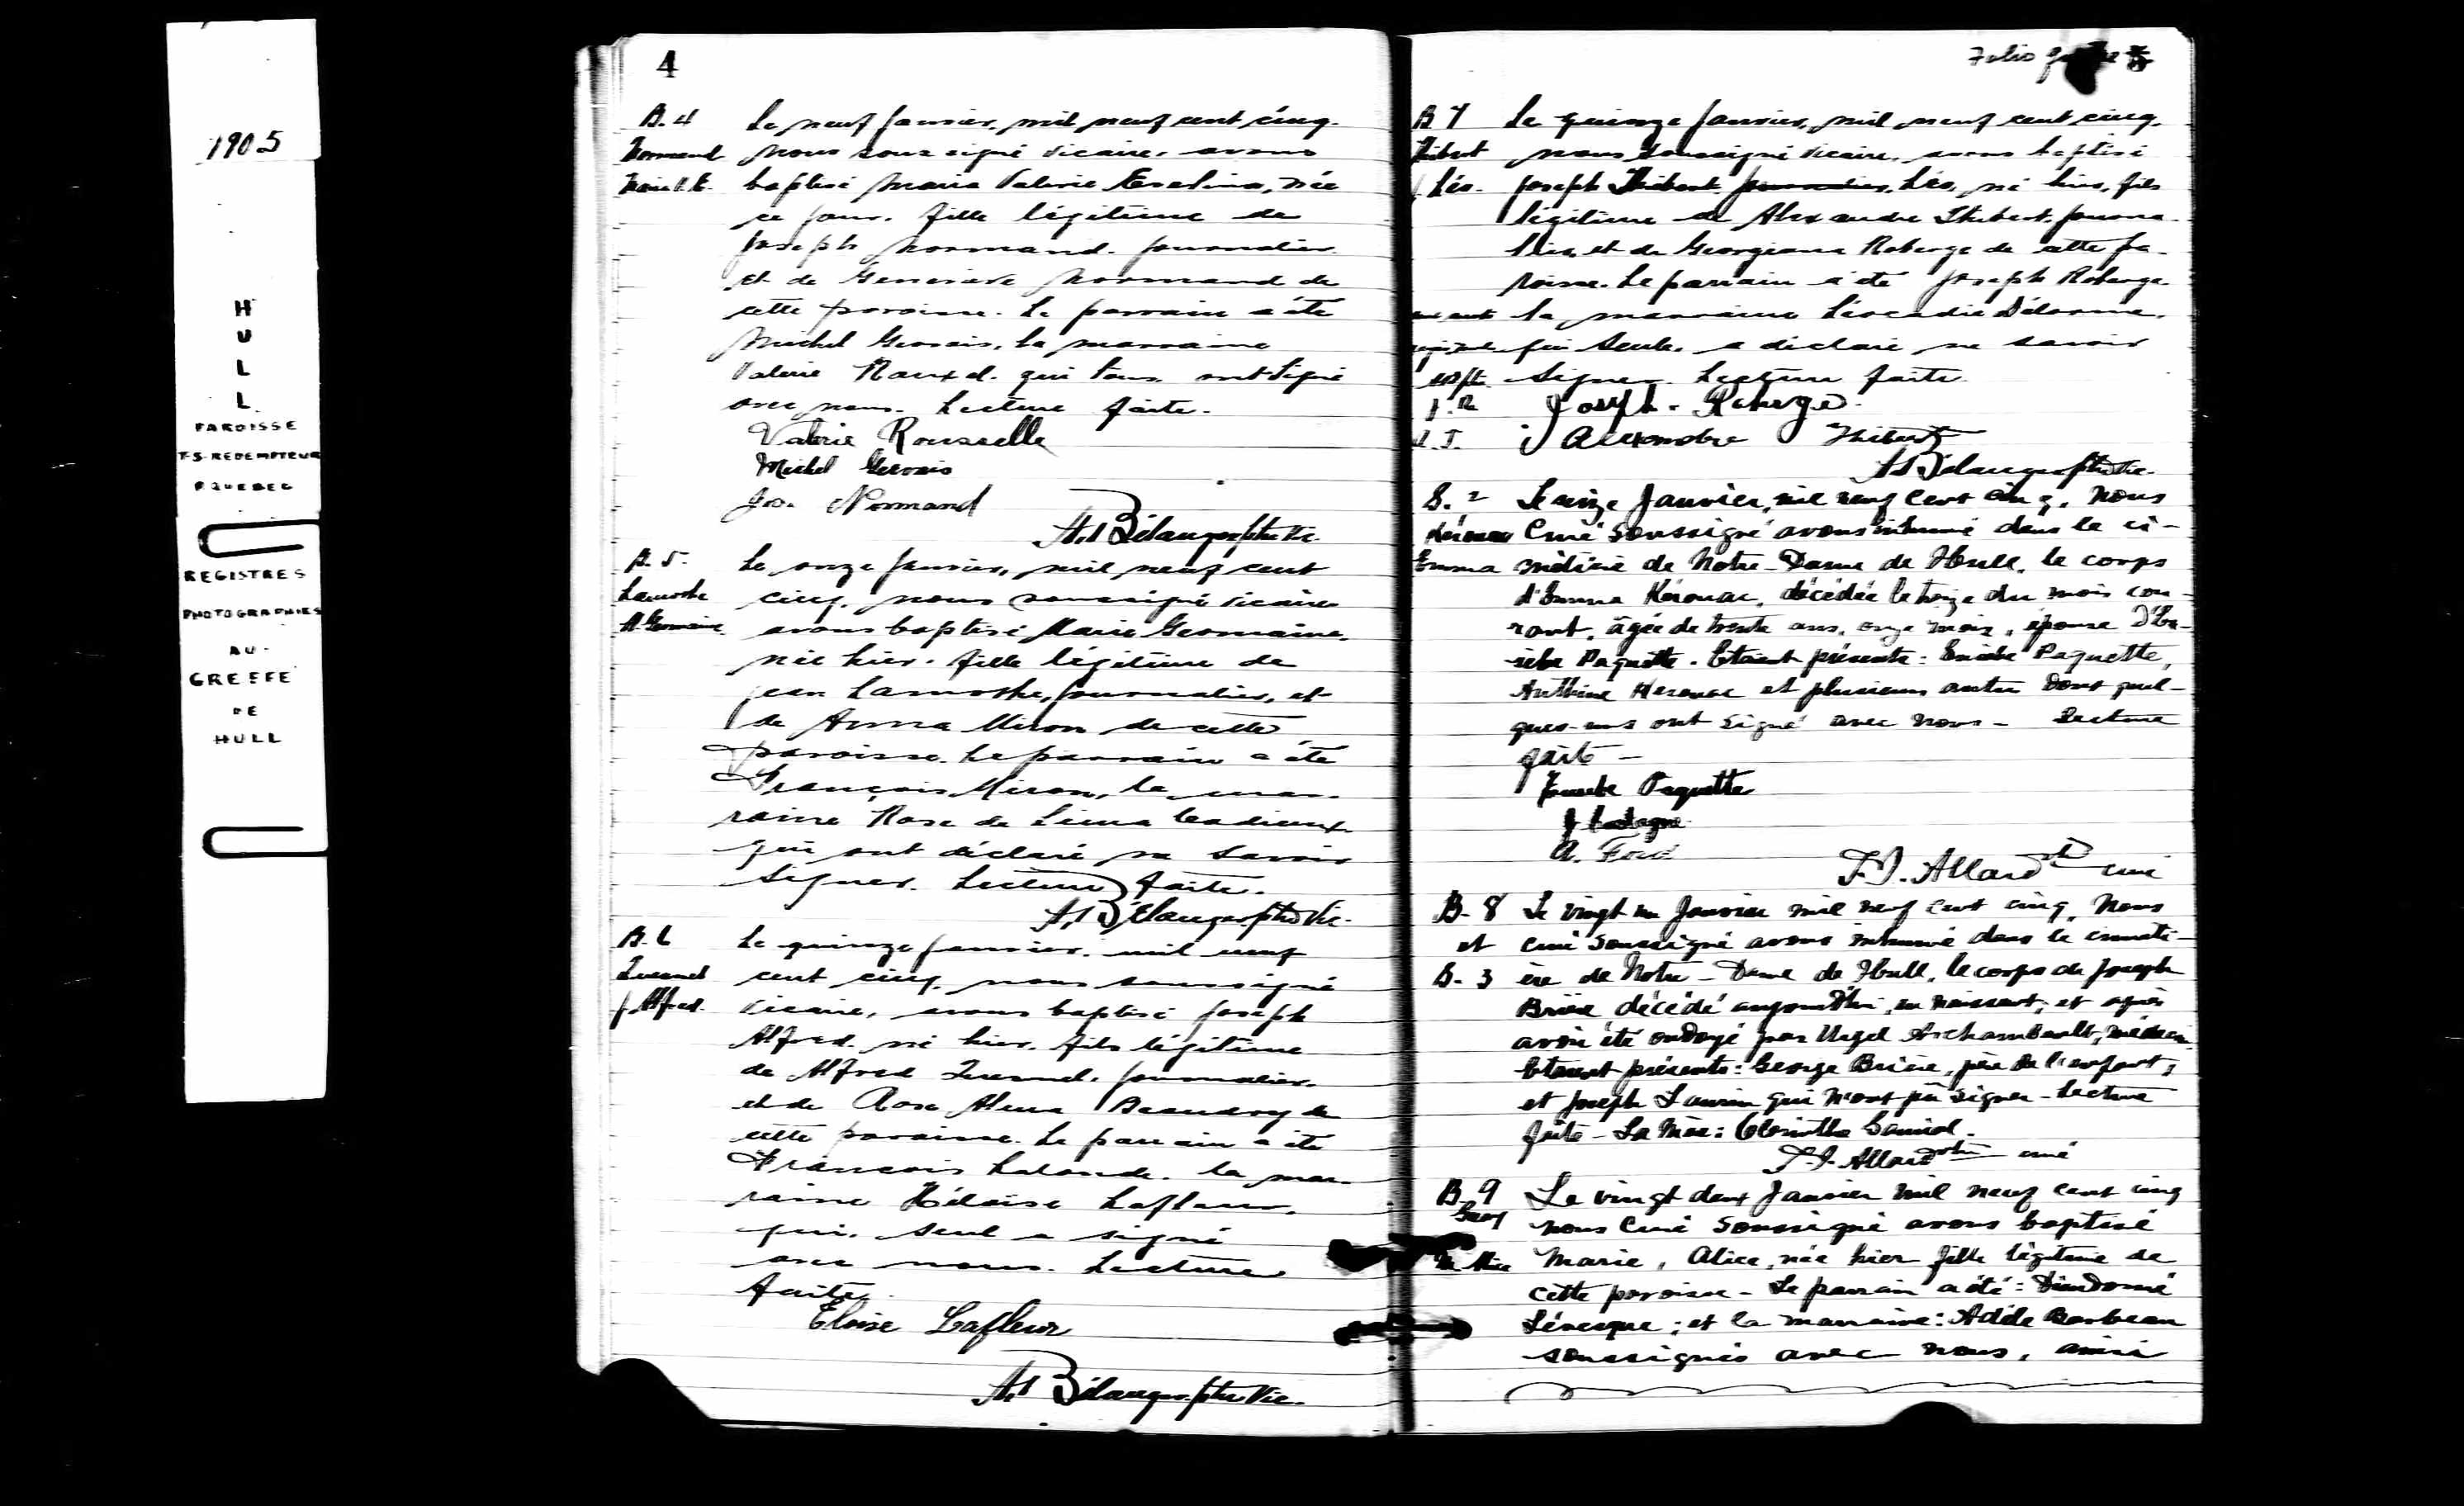 1905
HULL
PAROISSE
T-S-REDEMPTEUR
P. QUEBEC
REGISTRES
PHOTOGRAPHIES
AU
GREFFE
DE
HULL
4
B. 4 Le neuf janvier, mil neuf cent cinq.
Normand nous soussigné vicaire, avons
baptisé Marie Valérie Evelina, née
ce jour, fille légitime de
Joseph Normand, journalier
et de Geneviève Normand de
cette paroisse. Le parrain a été
Michel Gervais, la marraine
Valérie qui tous ont signé
avec nous. Lecture faite.
Valérie Rousselle
Michel Gervais
Jos. Normand
A. Bélanger ptre Vic.
B. 5. Le onze janvier, mil neuf cent
Lamothe cinq, nous soussigné vicaire
M. Germaine avons baptisé Marie Germaine,
née hier, fille légitime de
Jean Lamothe, journalier, et
de Anna Miron de cette
paroisse. Le parrain a été
François Miron, la mar-
raine Rose de Lima Cadieux
qui ont déclaré ne savoir
signer. Lecture faite.
A. Bélanger ptre Vic.
B. 6 Le quinze janvier, mil neuf
cent cinq, nous soussigné
J. Alfred. vicaire, avons baptisé Joseph
Alfred, né hier, fils légitime
de Alfred journalier
et de Rose Alma Beaudry de
cette paroisse. Le parrain a été
François Lalonde, la mar-
raine Héloise Lafleur,
qui, seul a signé
avec nous. Lecture
faite.
Eloise Lafleur
A. Bélanger ptre Vic.
Folio
B 7 Le quinze janvier, mil neuf cent cinq,
Thibert nous soussigné vicaire, avons baptisé
J. Léo. Joseph Thibert journalier, Léo, né hier, fils
légitime de Alexandre Thibert, journa-
lier, et de Georgiana Roberge de cette pa-
roisse. Le parrain a été Joseph Roberge
la marraine Léocadie Délorme,
qui seule, a déclaré ne savoir
signer. Lecture faite.
J. R. Joseph. Roberge.
A. T. Alexandre Thibert
A. Bélanger ptre Vic.
S. 2 Le seize Janvier, mil neuf cent cinq, nous
Kérouac Curé soussigné avons inhumé dans le ci-
Emma métière de Notre-Dame de Hull, le corps
d'Emma Kérouac, décédée le treize du mois cou-
rant, âgée de trente ans, onze mois, épouse d'Eu-
sèbe Paquette. Étaient présents: Eusèbe Paquette,
Anthime Kerouac et plusieurs autres dont quel-
ques-uns ont signé avec nous - Lecture
faite -
Eusèbe Paquette
A.
F. X. Allard ptre curé
B. 8 Le vingt un Janvier mil neuf cent cinq, Nous
et curé soussigné avons inhumé dans le cimeti-
S. 3 ère de Notre-Dame de Hull, le corps de Joseph
Brière décédé aujourd'hui, en naissant, et après
avoir été ondoyé par Urgel Archambault, médecin.
Étaient présents: George Brière, père de l'enfant,
et Joseph Laurin qui n'ont pu signer - Lecture
faite - La Mère: Clorinthe
F. X. Allard ptre curé
B. 9 Le vingt deux Janvier mil neuf cent cinq
nous Curé soussigné avons baptisé
M. Alice Marie, Alice, née hier fille légitime de
cette paroisse - Le parrain a été: Dieudonné
Lévesque; et la marraine: Adèle Barbeau
soussignés avec nous, ainsi